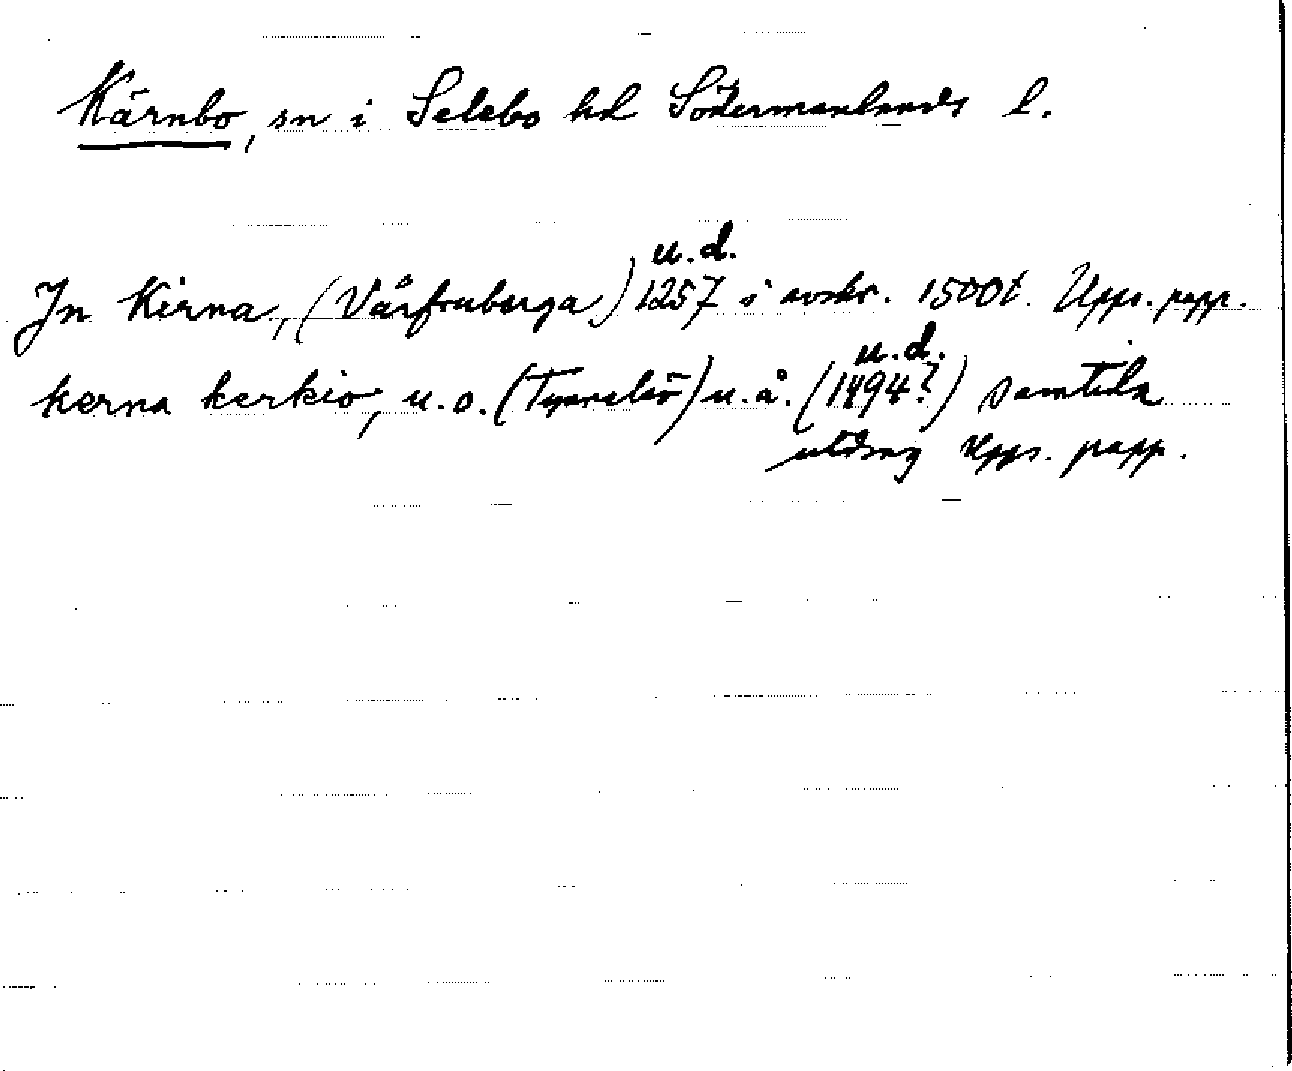 Kärnbo, sn i Selebo hd Södermanlands l.
u.d.
In Kirna, (Vårfruberga) 1257 i avskr. 1500t. Upps. papp.
u.d.
kerna kerkio, u.o. (Tynnelsö) u.å. (1494?) samtida
utdrag Upps. papp.